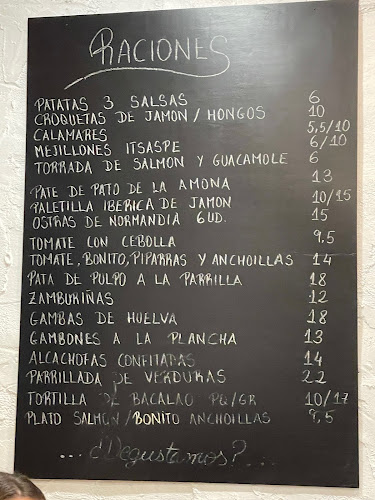 RACIONES
PATATAS 3 SALSAS 6
CROQUETAS DE JAMON / HONGOS 10
CALAMARES 5,5/10
MEJILLONES ITSASPE 6/10
TORRADA DE SALMON Y GUACAMOLE 6
PATE DE PATO DE LA AMONA 13
PALETILLA IBERICA DE JAMON 10/15
OSTRAS DE NORMANDIA 6 UD. 15
TOMATE CON CEBOLLA 9,5
TOMATE, BONITO, PIPARRAS Y ANCHOILLAS 14
PATA DE PULPO A LA PARRILLA 18
ZAMBURIÑAS 12
GAMBAS DE HUELVA 18
GAMBONES A LA PLANCHA 13
ALCACHOFAS CONFITADAS 14
PARRILLADA DE VERDURAS 22
TORTILLA DE BACALAO PQ/GR 10/17
PLATO SALMON / BONITO ANCHOILLAS
... ¿Degustamos? ...